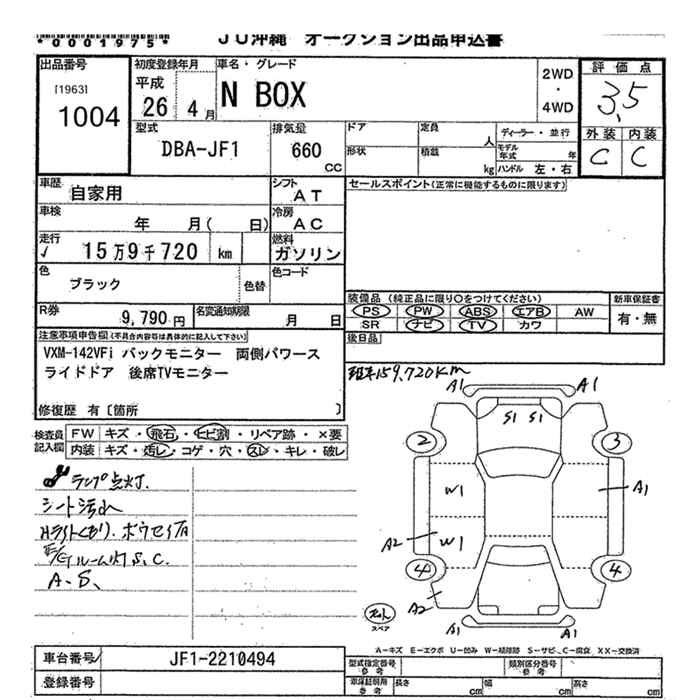 *0001975*
JU沖縄 オークション出品申込書
出品番号
[1963]
1004
初度登録年月
平成
26 4月
車名・グレード
N BOX
2WD
・
4WD
評価点
3.5
外装 内装
C C
型式
DBA-JF1
排気量
660
CC
ドア
形状
定員
人
積載
kg
ディーラー・並行
モデル年式 年
ハンドル 左・右
車歴
自家用
シフト
AT
車検
年 月( 日)
冷房
AC
走行
√ 15万9千720 km
燃料
ガソリン
色
ブラック
色替
色コード
セールスポイント(正常に機能するものに限ります)
R券
9,790円
名変通知期限
月 日
装備品 (純正品に限り〇をつけてください)
PS PW ABS エアB AW
SR ナビ TV カワ
新車保証書
有・無
後日品
注意事項申告欄(不具合内容等は具体的に記入して下さい)
VXM-142VFi バックモニター 両側パワース
ライドドア 後席TVモニター
修復歴 有〔箇所 〕
159,720KM
検査員記入欄
FW キズ・飛石・ヒビ割・リペア跡・×要
内装 キズ・汚レ・コゲ・穴・スレ・キレ・破レ
ランプ点灯.
シート汚れ
Hライトくもり. ボウセイ有
ルーム内 S、C.
A、S、
A1 A1
S1 S1
2 3
W1 A1
A2 W1
4 4
A2
スペア
A1 A1
A-キズ E-エクボ U-凹み W-補修跡 S-サビ、C-腐食 XX-交換済
車台番号 JF1-2210494
登録番号
型式指定番号 参考
類別区分番号 参考
車庫証明用 参考 長さ cm 幅 cm 高さ cm